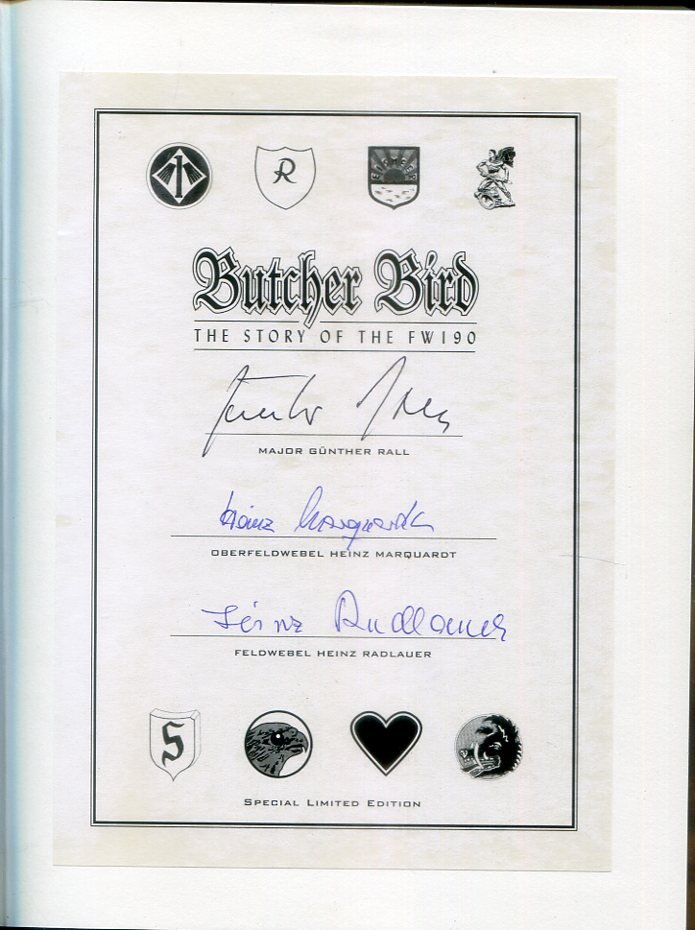 1
R
Butcher Bird
THE STORY OF THE FW190
MAJOR GÜNTHER RALL
Heinz Marquardt
OBERFELDWEBEL HEINZ MARQUARDT
Heinz Radlauer
FELDWEBEL HEINZ RADLAUER
S
SPECIAL LIMITED EDITION